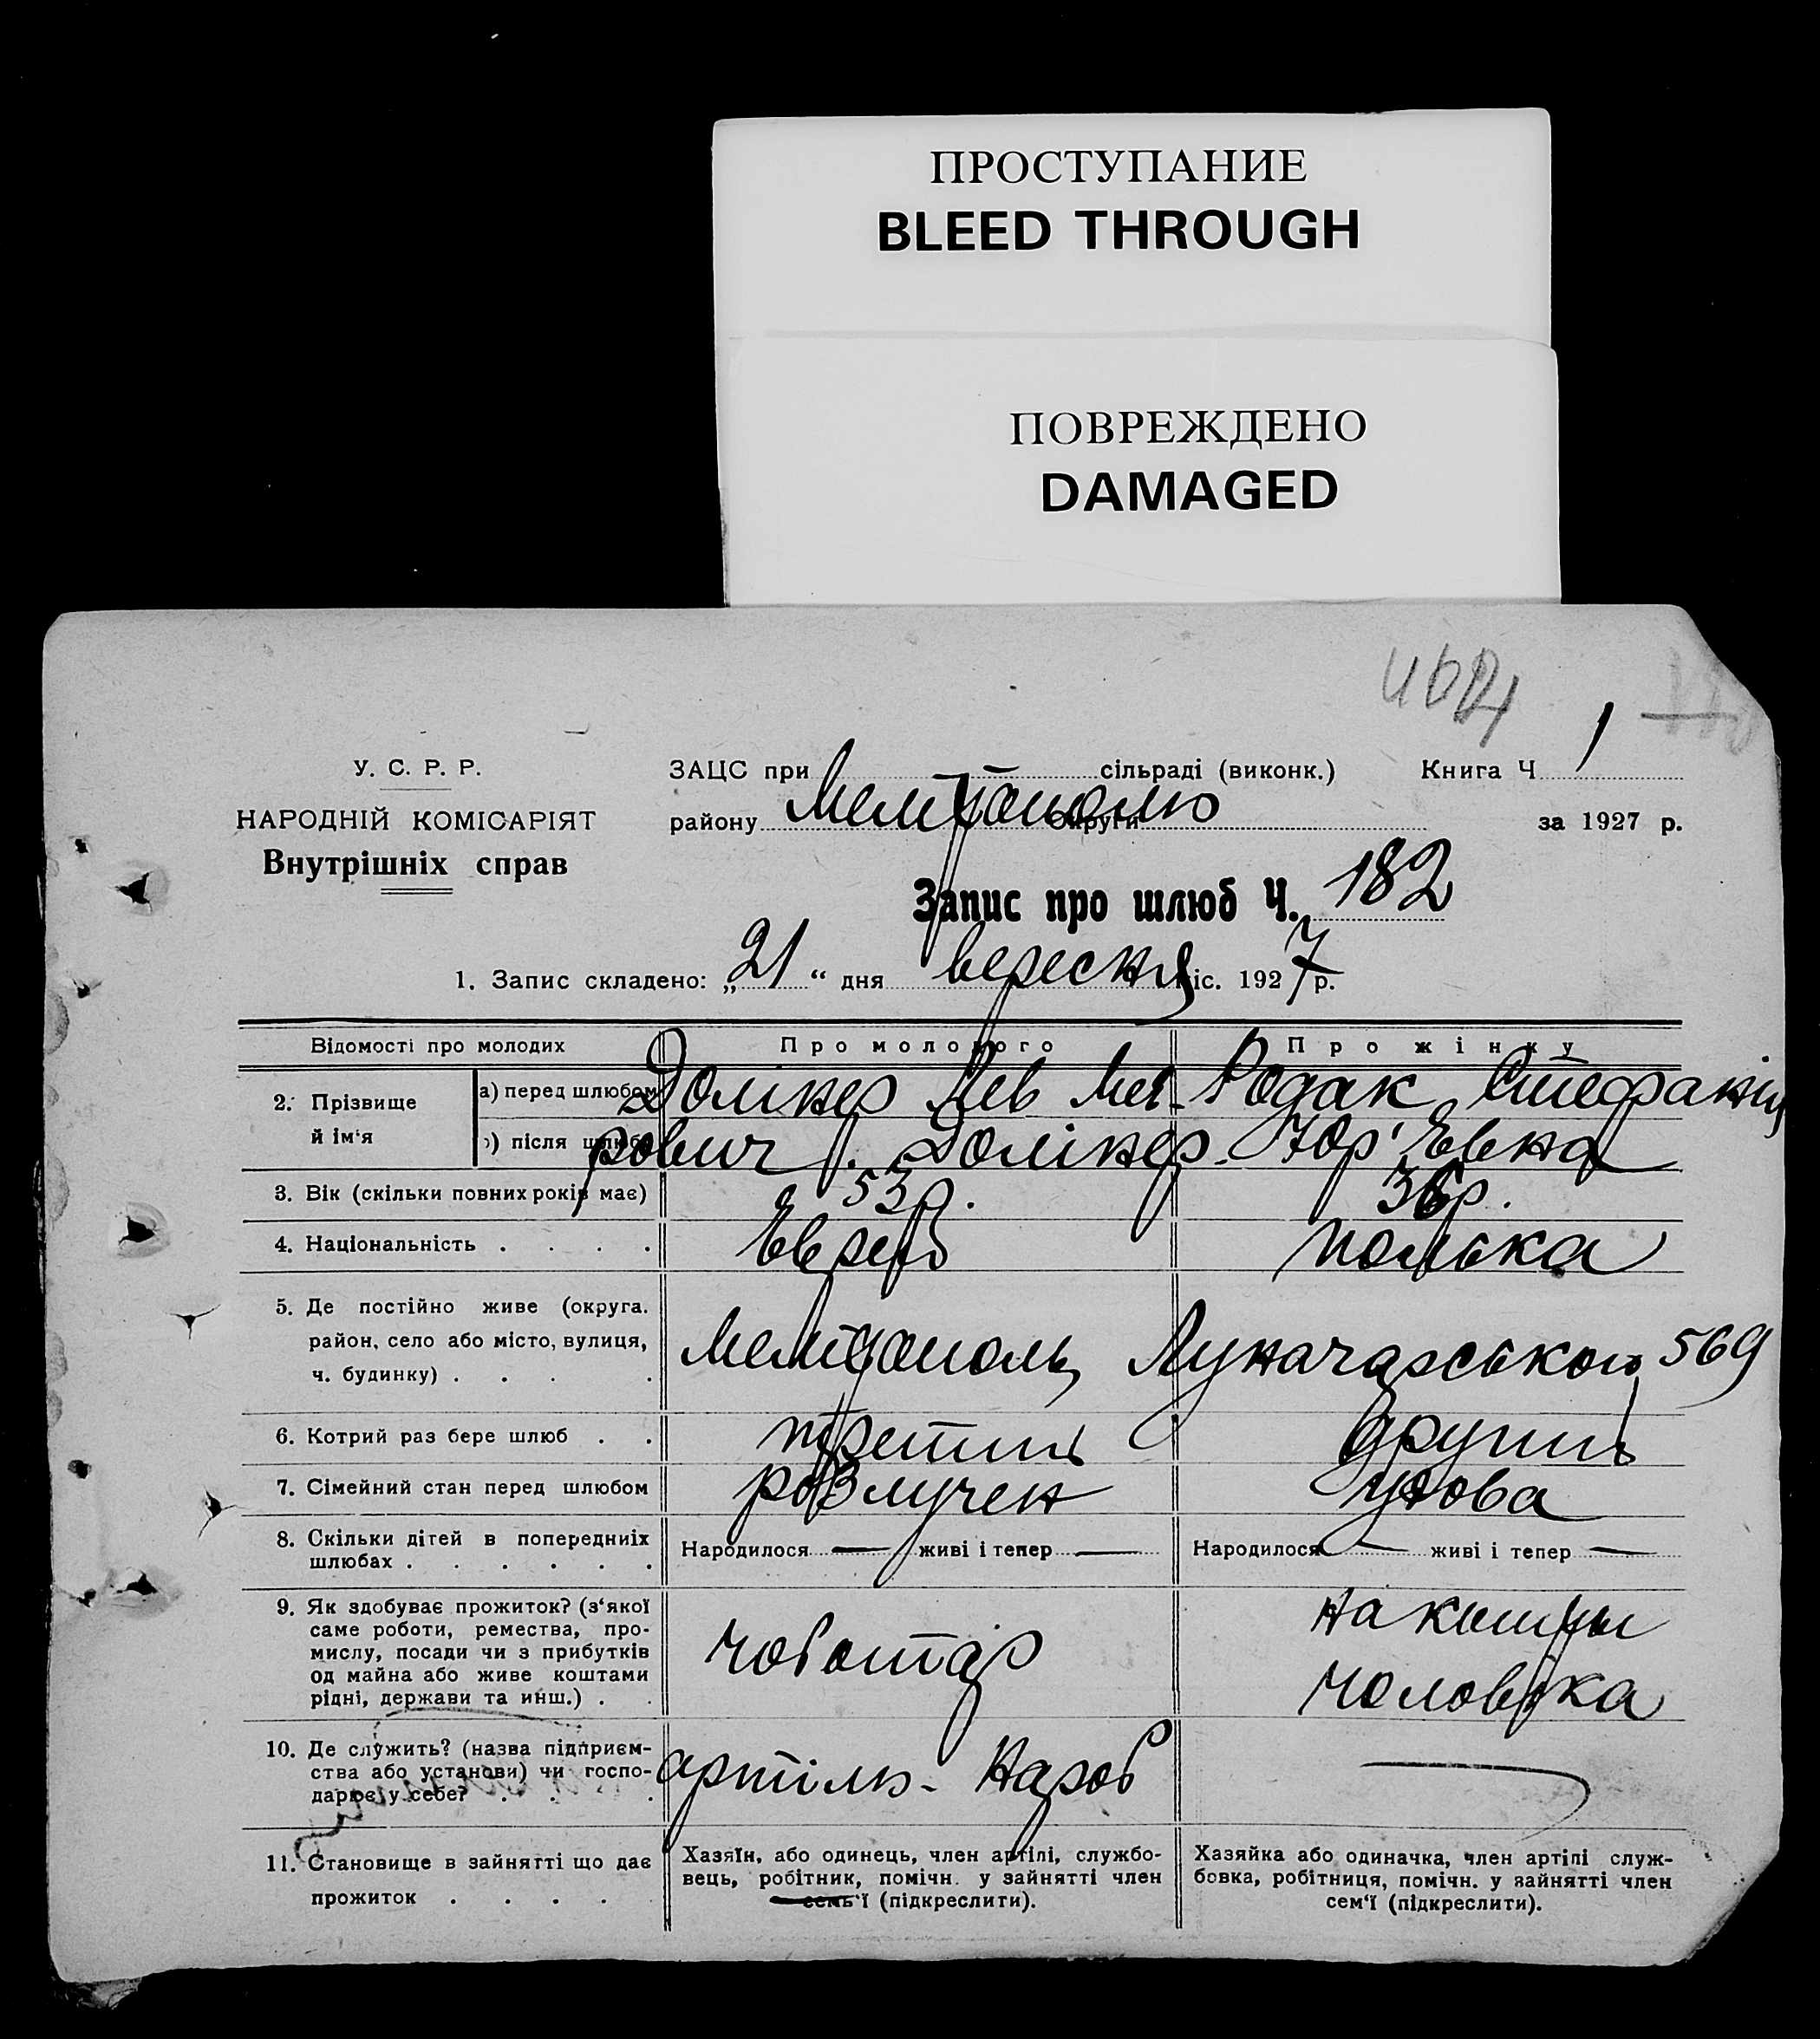 ПРОСТУПАНИЕ
BLEED THROUGH
ПОВРЕЖДЕНО
DAMAGED
У. С. Р. Р.
НАРОДНІЙ КОМІСАРІЯТ
Внутрішніх справ
ЗАЦС при сільраді (виконк.) Книга Ч 1
району Мелітополю округи за 1927 р.
Запис про шлюб Ч. 182
1. Запис складено: „21“ дня вересня міс. 1927 р.
Відомості про молодих
Про молодого
Про жінку
2. Прізвище й ім'я
а) перед шлюбом Долінер Лев Мей- Родак Стефанія
б) після шлюбу рович Долінер. Юр'Евна
3. Вік (скільки повних років має) 53 р. 36 р.
4. Національність . . . . Еврей полька
5. Де постійно живе (округа.
район, село або місто, вулиця,
ч. будинку) . . . .
Мелітополь Луначарського 569
6. Котрий раз бере шлюб . . третий другий
7. Сімейний стан перед шлюбом розлучен удова
8. Скільки дітей в попередніх
шлюбах . . . . . .
Народилося — живі і тепер —
Народилося — живі і тепер —
9. Як здобуває прожиток? (з'якої
саме роботи, ремества, про-
мислу, посади чи з прибутків
од майна або живе коштами
рідні, держави та инш.) . .
чоботар
на кошты
чоловіка
10. Де служить? (назва підприєм-
ства або установи) чи госпо-
дарює у себе? . . .
артіль
—
11. Становище в зайнятті що дає
прожиток . . . . .
Хазяїн, або одинець, член артілі, службо-
вець, робітник, помічн. у зайнятті член
семь'ї (підкреслити).
Хазяйка або одиначка, член артілі служ-
бовка, робітниця, помічн. у зайнятті член
сем'ї (підкреслити).